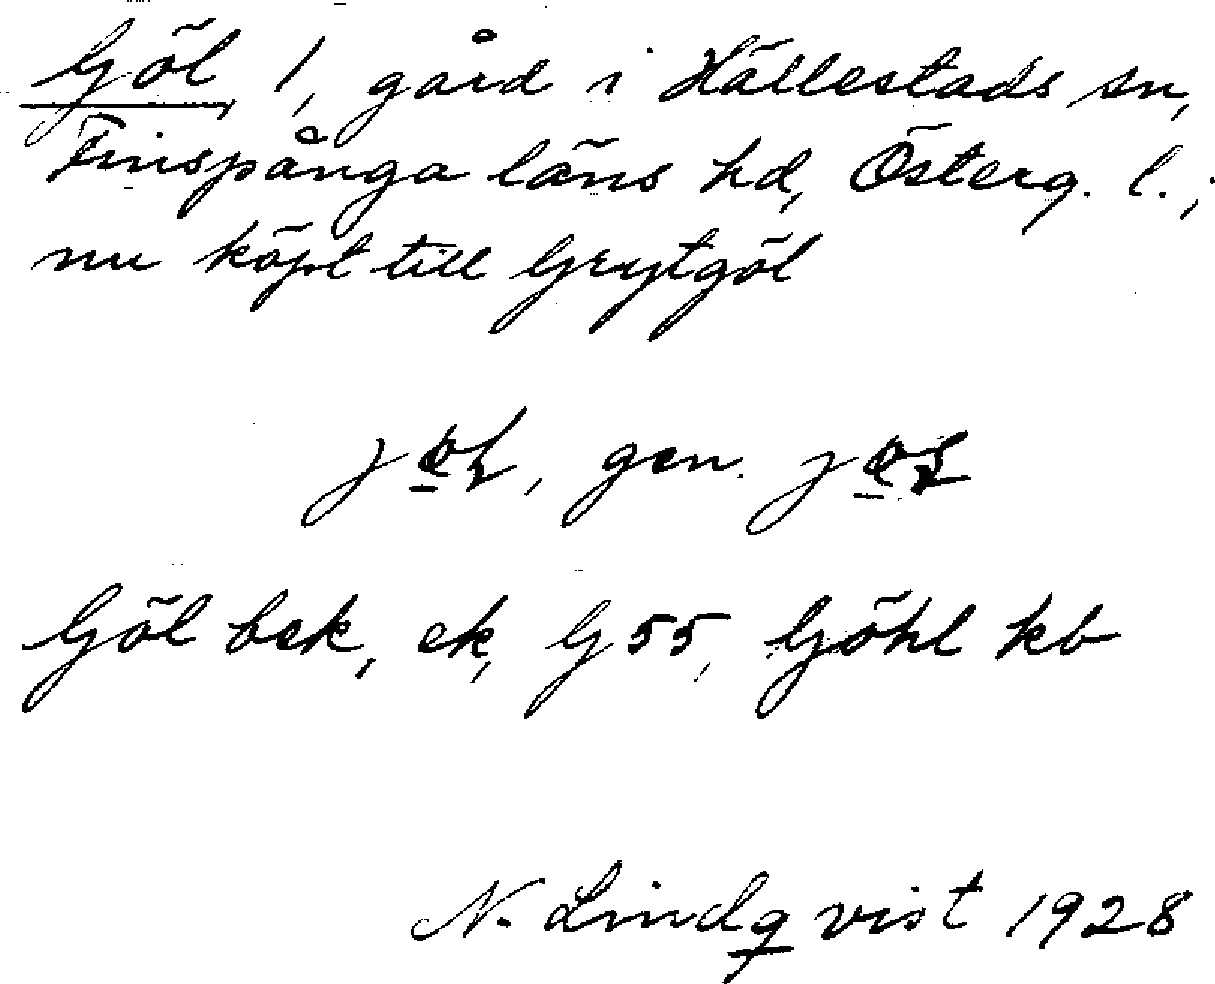 Göl 1, gård i Hällestads sn,
Finspånga läns hd, Österg. l.;
nu köpt till Grytgöl
gen.
Göl bek, ek, G 55, Gjöhl kb
N. Lindqvist 1928